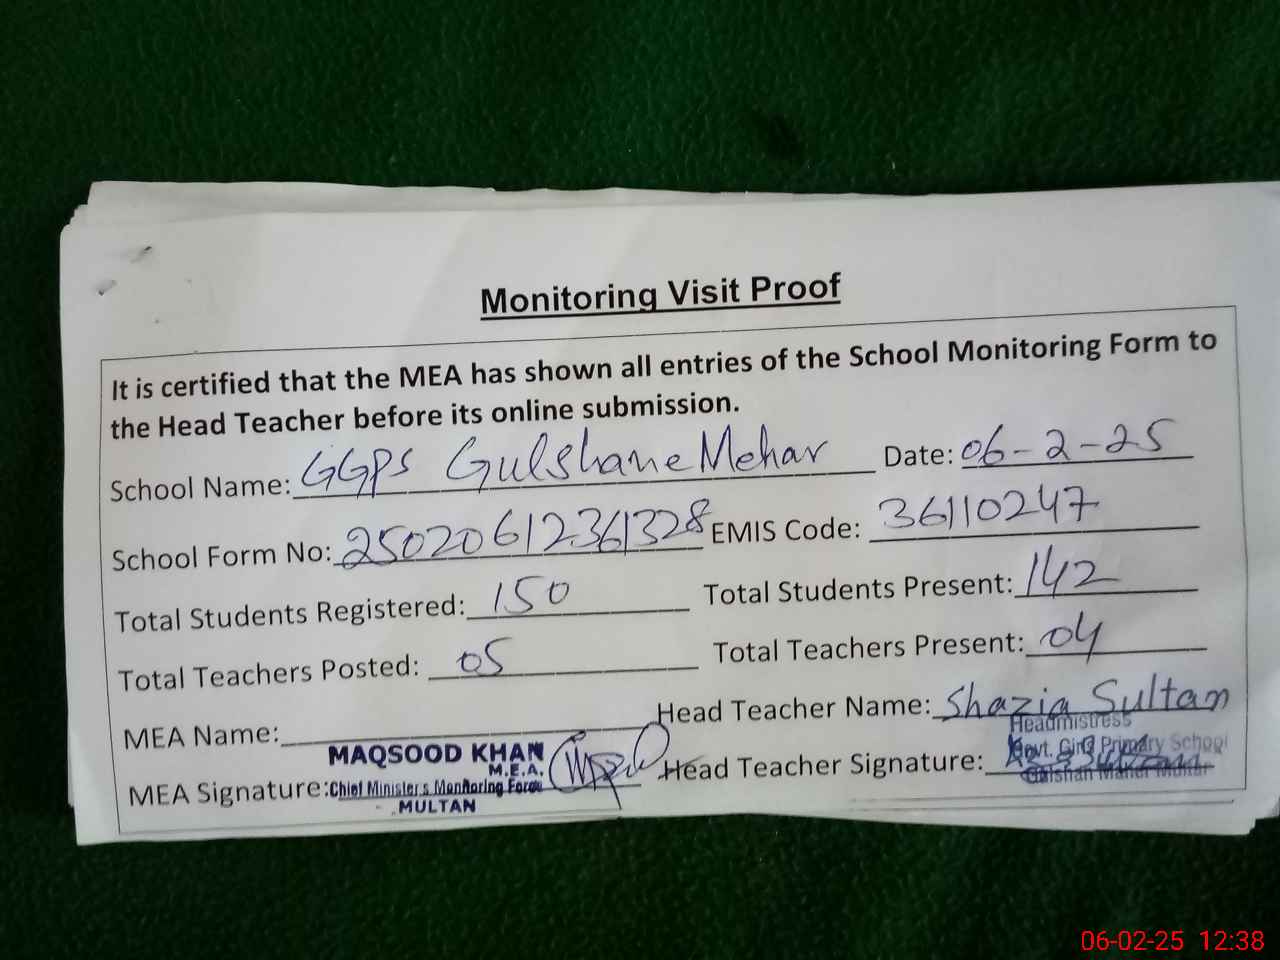 Monitoring Visit Proof
It is certified that the MEA has shown all entries of the School Monitoring Form to
the Head Teacher before its online submission.
School Name: GGPS Gulshane Mehar Date: 06-2-25
School Form No: 25020612361328 EMIS Code: 36110247
Total Students Registered: 150 Total Students Present: 142
Total Teachers Posted: 05 Total Teachers Present: 04
MEA Name: Head Teacher Name: Shazia Sultan
MAQSOOD KHAN
M.E.A.
MEA Signature: Chief Minister's Monitoring Force
MULTAN
Head Teacher Signature:
Headmistress
Govt. Girls Primary School
Gulshan Mahar Multan
06-02-25 12:38